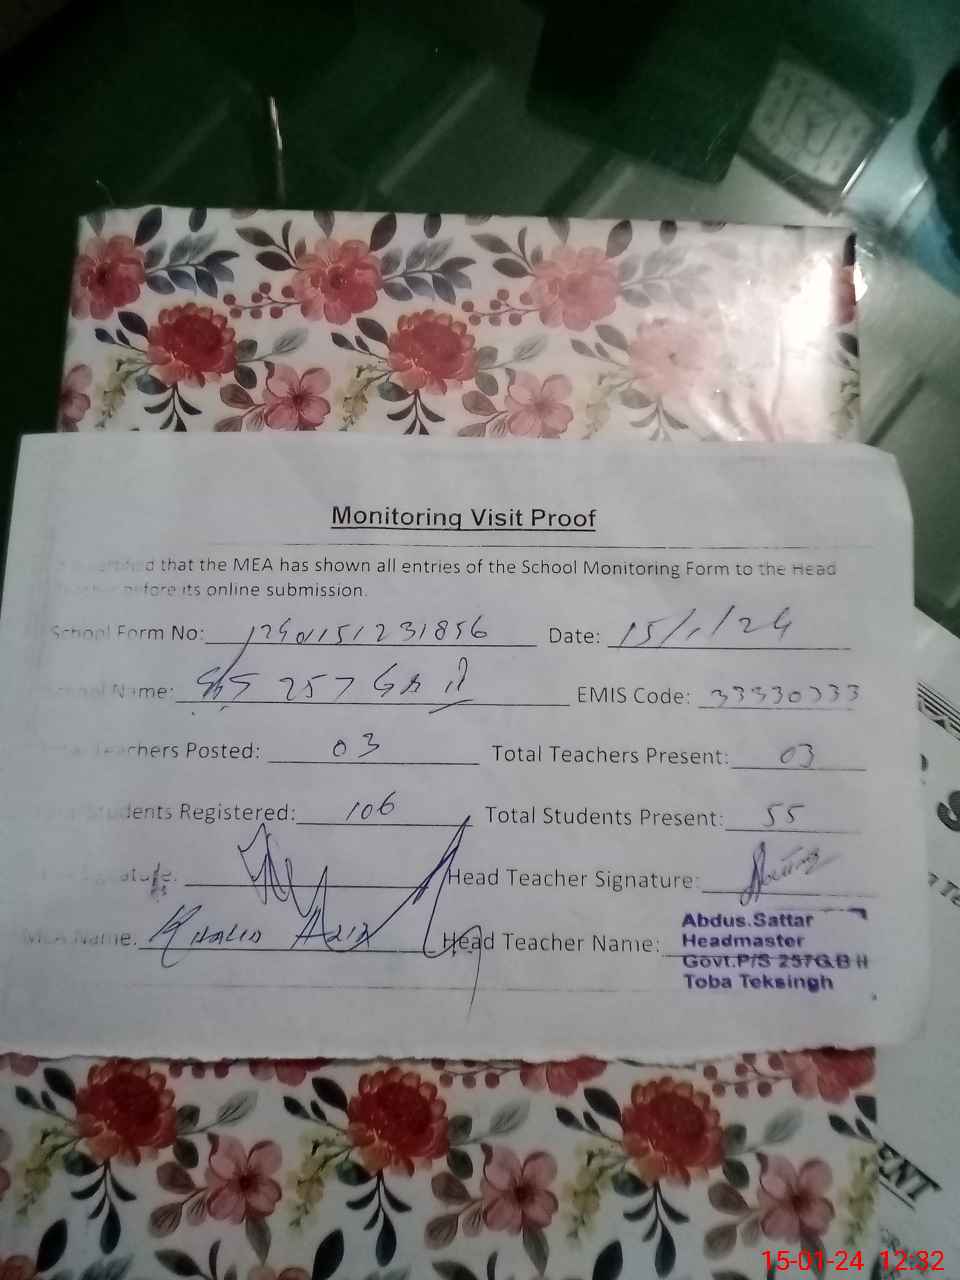 Monitoring Visit Proof
that the MEA has shown all entries of the School Monitoring Form to the Head
before its online submission.
School Form No: 1240151231856 Date: 15/1/24
School Name: 257 GB II EMIS Code: 33330333
Teachers Posted: 03 Total Teachers Present: 03
Students Registered: 106 Total Students Present: 55
Head Teacher Signature:
MEA Name. Khalid Aziz Head Teacher Name:
Abdus.Sattar
Headmaster
Govt.P/S 257G.B II
Toba Teksingh
15-01-24 12:32